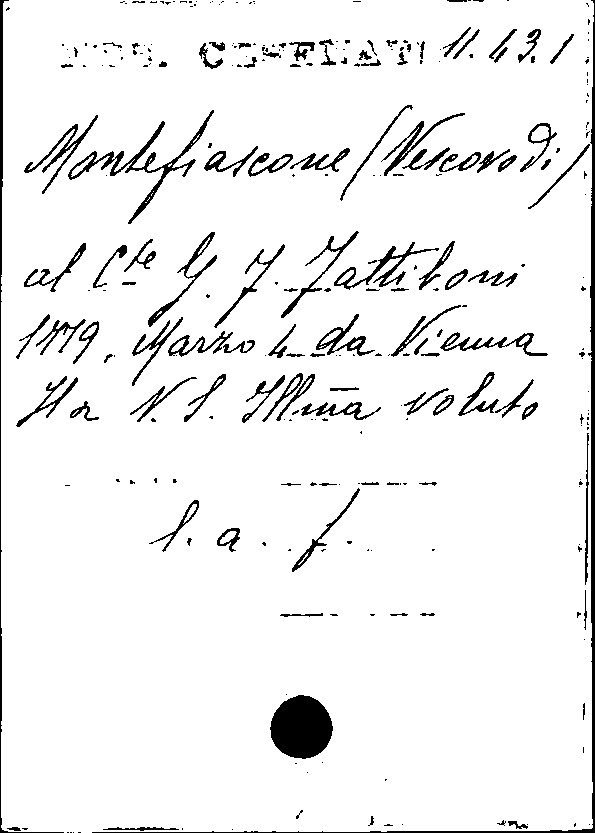 MSS. CESENATI 11.43.1
Montefiascone (Vescovo di)
al C.te G. F. Fattiboni
1779, Marzo 4 da Vienna
Ha V. S. Illm̃a voluto
l. a. f.